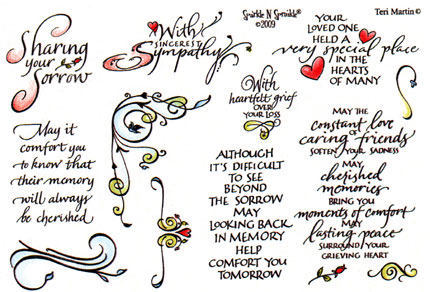 Sharing
your
Sorrow
With
SINCEREST
Sympathy
Sparkle N Sprinkle®
©2009
YOUR
LOVED ONE
HELD A
very special place
IN THE
HEARTS
OF MANY
Teri Martin©
With
heartfelt grief
OVER
YOUR LOSS
May it
comfort you
to know that
their memory
will always
be cherished
ALTHOUGH
IT'S DIFFICULT
TO SEE
BEYOND
THE SORROW
MAY
LOOKING BACK
IN MEMORY
HELP
COMFORT YOU
TOMORROW
MAY THE
constant love
OF
caring friends
SOFTEN YOUR SADNESS
MAY
cherished
memories
BRING YOU
moments of comfort
MAY
lasting peace
SURROUND YOUR
GRIEVING HEART